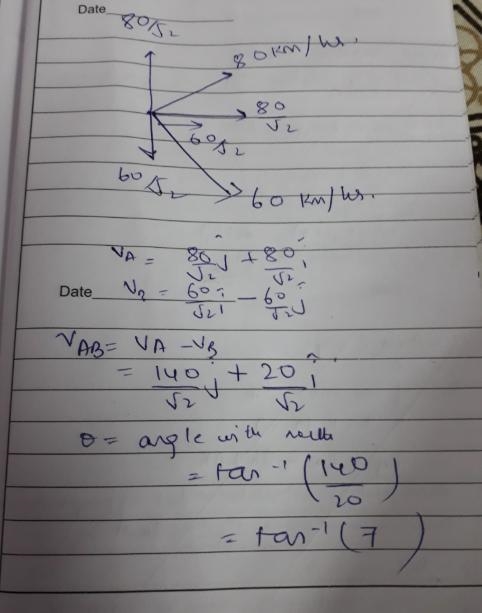 Date
80/√2
80 km/hr.
80/√2
60/√2
60/√2
60 km/hr.
V_A = 80/√2 ĵ + 80/√2 î
Date
V_B = 60/√2 î − 60/√2 ĵ
V_AB = V_A − V_B
= 140/√2 ĵ + 20/√2 î
θ = angle with
= tan⁻¹ (140/20)
= tan⁻¹ (7)